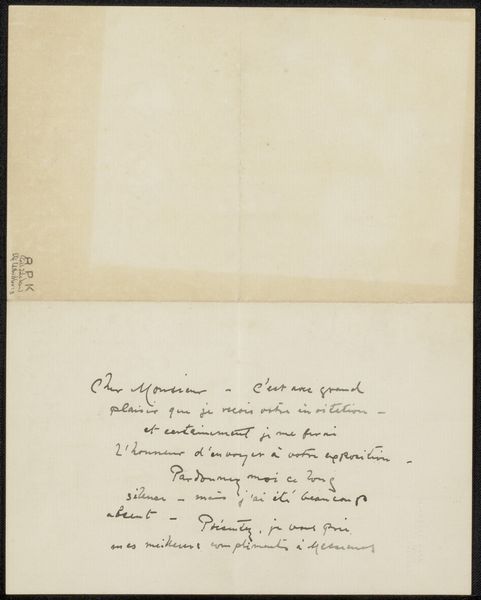 Cher Monsieur – C'est avec grand
plaisir que je reçois votre invitation –
et certainement je me ferai
l'honneur d'envoyer à votre exposition –
Pardonnez moi ce long
silence – mais j'ai été beaucoup
absent – Présentez, je vous prie
mes meilleurs compliments à Messieurs
R P K